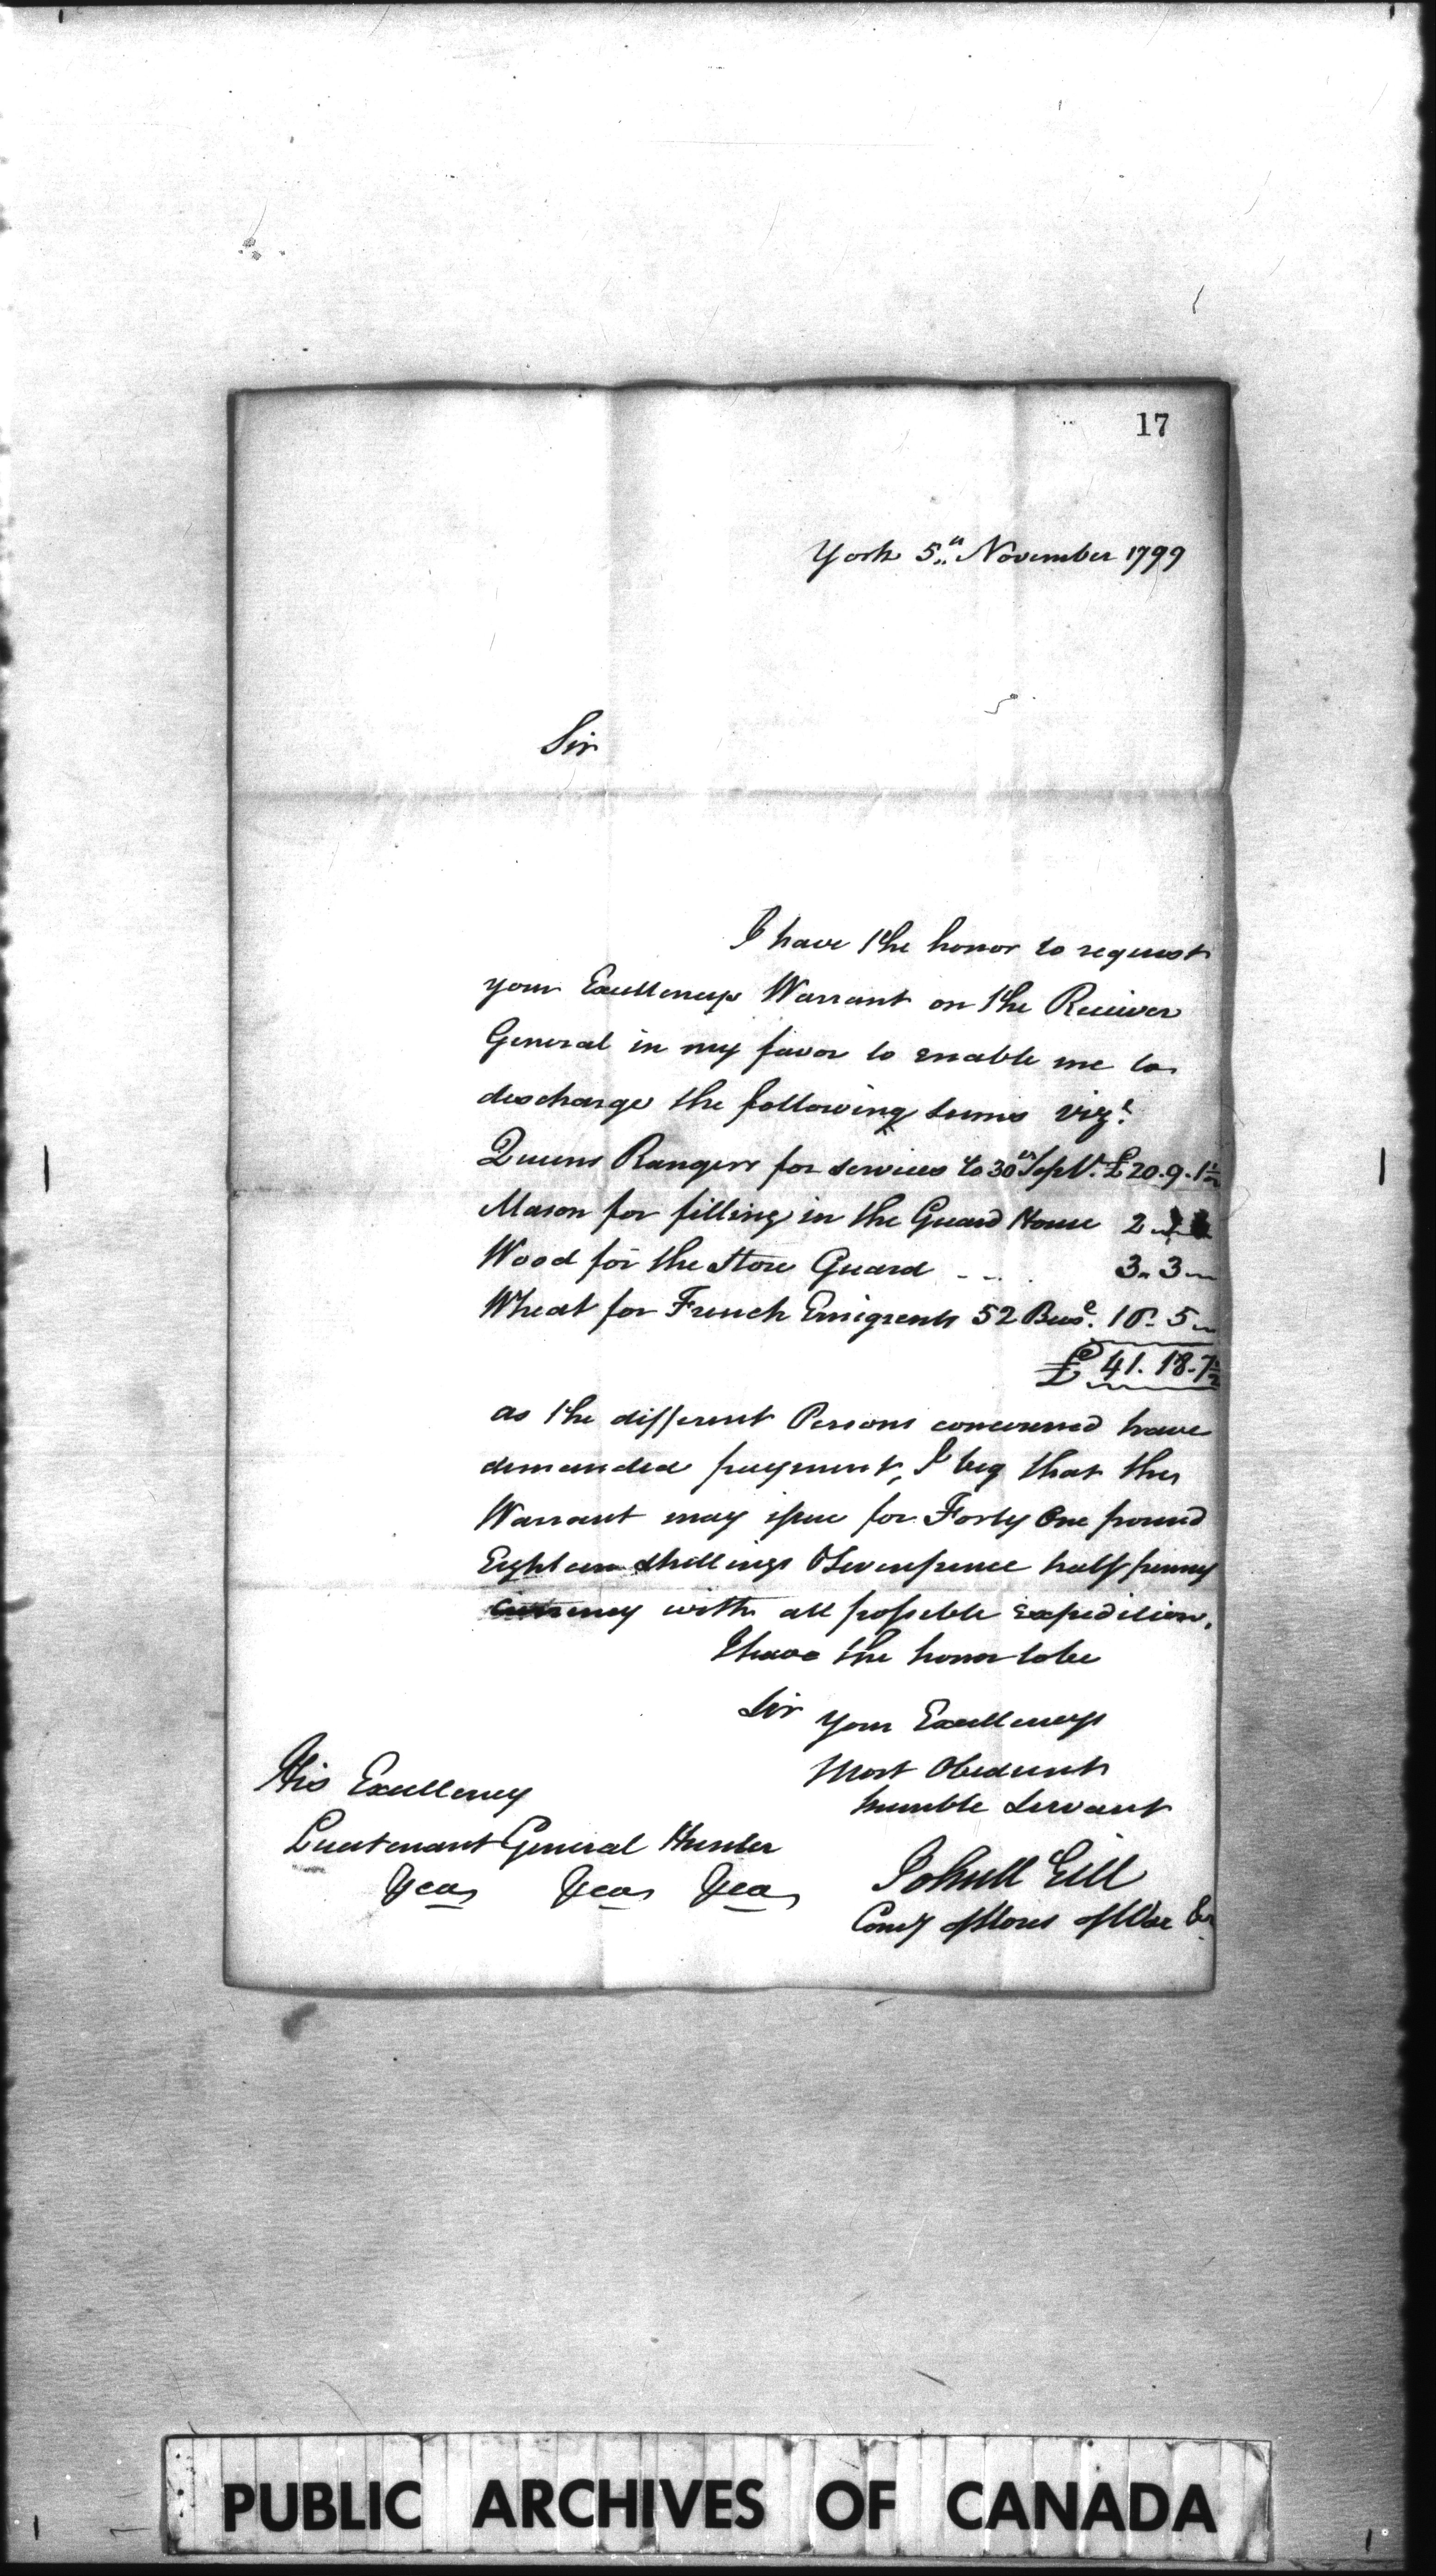 17
York 5th November 1799
Sir
I have the honor to request
your Excellencys Warrant on the Receiver
General in my favor to enable me to
discharge the following sums vizt
Queens Rangers for services to 30th Sept. £20.9.1½
Mason for filling in the Guard House 2
Wood for the Store Guard - - . . 3.. 3 —
Wheat for French Emigrents 52 Buse. 16. 5 —
£ 41. 18. 7½
as the different Persons concerned have
demanded payment, I beg that the
Warrant may issue for Forty One pound
Eighteen Shillings & Sevenpence half penny
Currency with all possible Expedition.
I have the honor to be
Sir your Excellencys
Most Obedient
humble Servant
John McGill
Comy of Stores of War &c
His Excellency
Lieutenant General Hunter
&ca &ca &ca
PUBLIC ARCHIVES OF CANADA